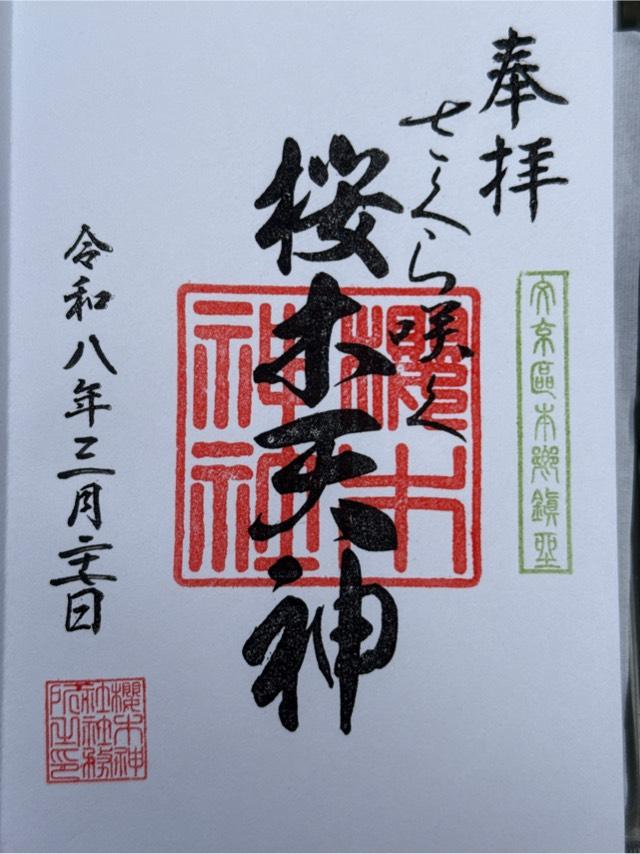 奉拝
さくら咲く
文京區本郷鎮座
桜木天神
櫻木
神社
令和八年三月二十七日
櫻木神
社社務
所之印